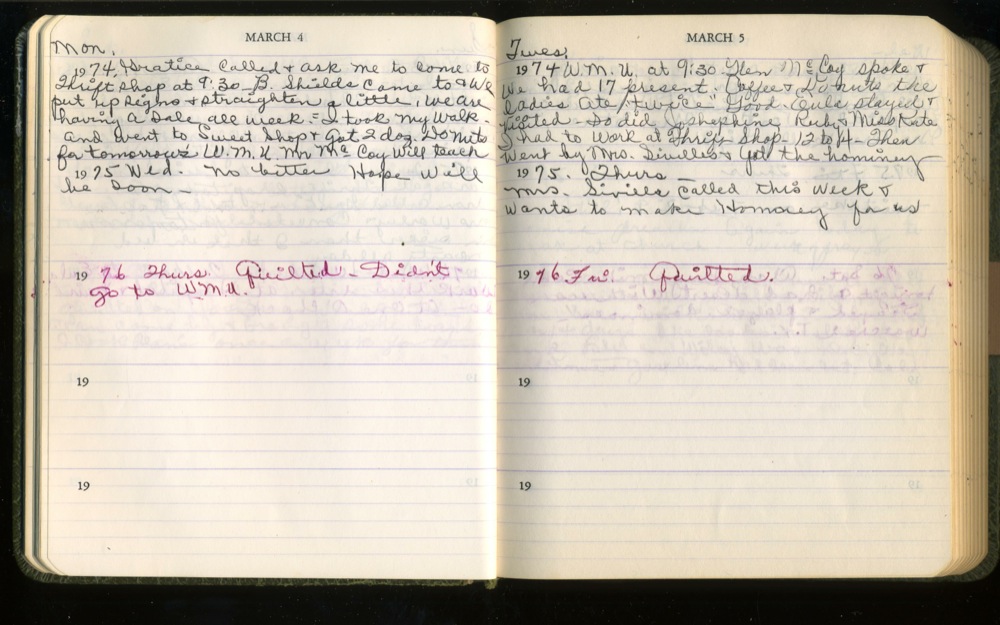 MARCH 4
Mon.
1974. Horatice called & ask me to come to
Thrift shop at 9:30 B. Shields came to & we
put up signs & straighten a little, we are
having a Sale all week = I took my walk -
and went to Sweet Shop & got 2 doz. Do nuts
for tomorrows W.M.U. Mr Mc Coy will teach
1975 Wed. no better Hope will
be soon -
1976 Thurs. Quilted - Didn't
go to W.M.U.
19
19
MARCH 5
Tues.
1974 W.M.U. at 9:30 Glen Mc Coy spoke &
we had 17 present. Coffee & Do nuts the
ladies ate twice Good. Eula stayed &
visited - So did Josephine Ruby & Miss Kate
I had to work at Thrift Shop - 12 to 4 - Then
went by Mrs. & got the hominey
1975. Thurs -
Mrs. called this week &
wants to make Hominey for us
1976 Fri. Quilted.
19
19